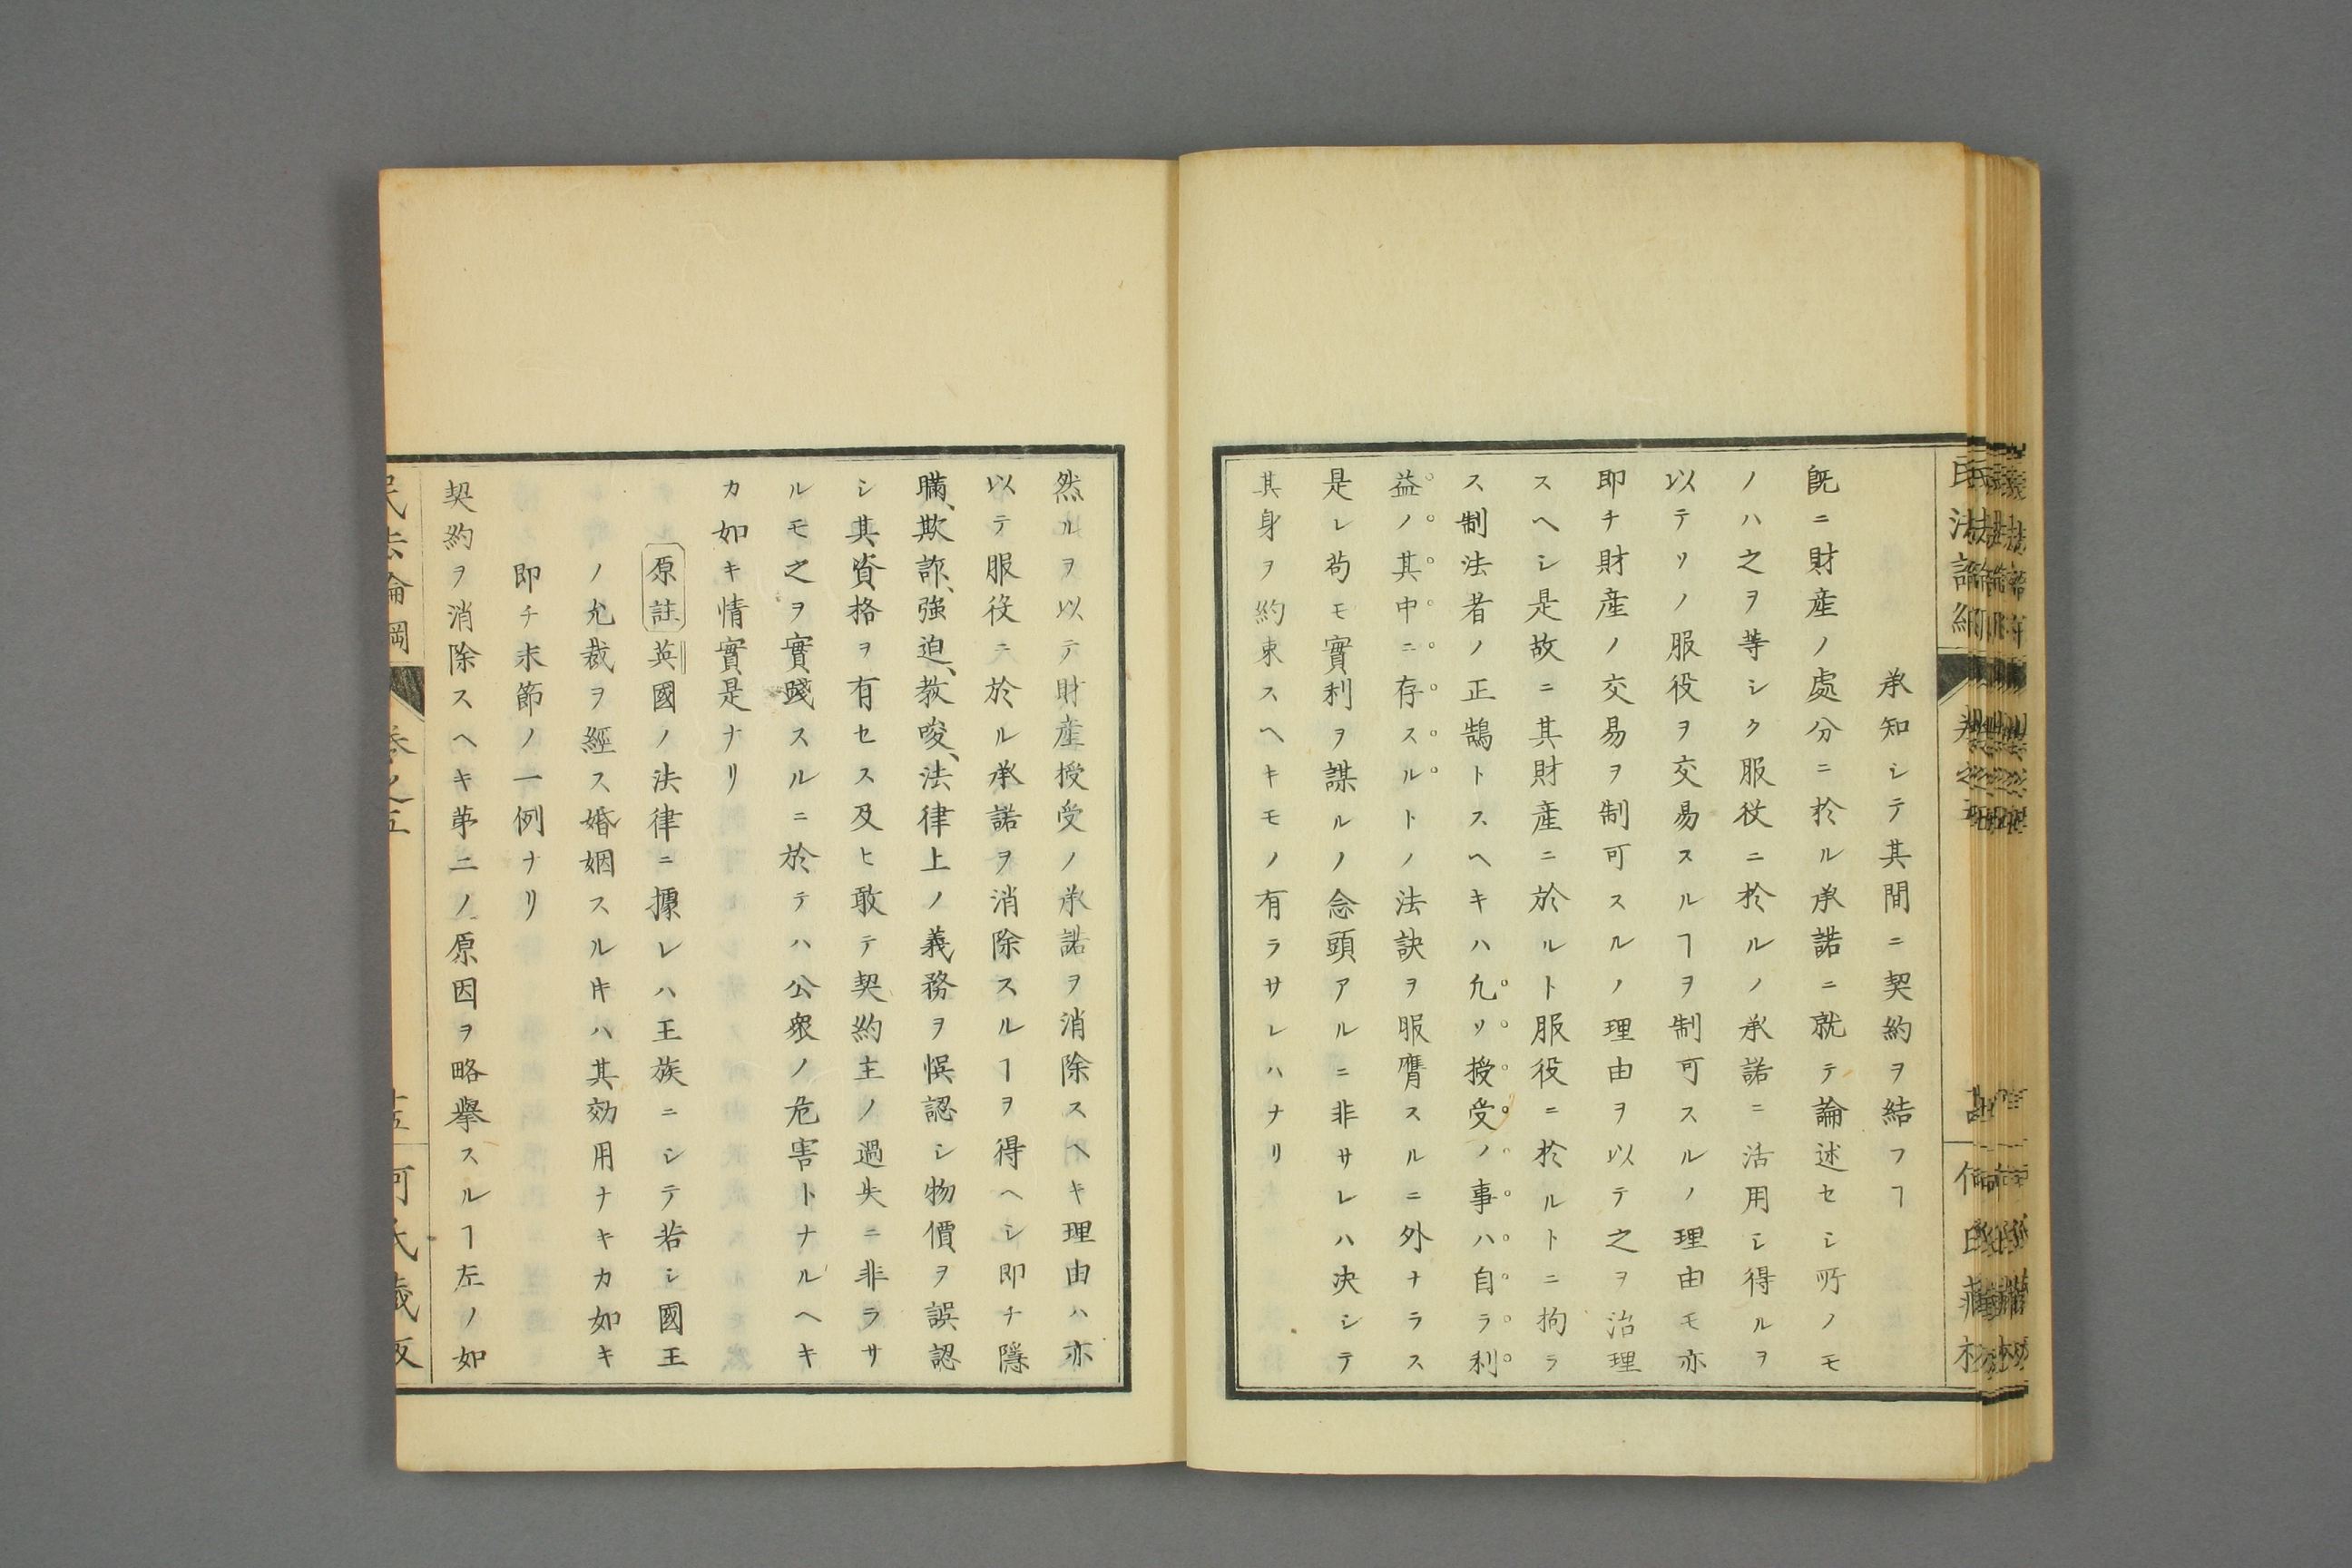 承知シテ其間ニ契約ヲ結フヿ
旣ニ財産ノ處分ニ於ル承諾ニ就テ論述セシ所ノモ
ノハ之ヲ等シク服役ニ於ルノ承諾ニ活用シ得ルヲ
以テソノ服役ヲ交易スルヿヲ制可スルノ理由モ亦
即チ財産ノ交易ヲ制可スルノ理由ヲ以テ之ヲ治理
スヘシ是故ニ其財産ニ於ルト服役ニ於ルトニ拘ラ
ス制法者ノ正鵠トスヘキハ凢ソ授受ノ事ハ自ラ利
益ノ其中ニ存スルトノ法訣ヲ服膺スルニ外ナラス
是レ苟モ實利ヲ謀ルノ念頭アルニ非サレハ决シテ
其身ヲ約束スヘキモノ有ラサレハナリ
然ルヲ以テ財産授受ノ承諾ヲ消除スヘキ理由ハ亦
以テ服役ニ於ル承諾ヲ消除スルヿヲ得ヘシ即チ隱
瞞、欺詐、強迫、教唆、法律上ノ義務ヲ悞認シ物價ヲ誤認
シ其資格ヲ有セス及ヒ敢テ契約主ノ過失ニ非ラサ
ルモ之ヲ實踐スルニ於テハ公衆ノ危害トナルヘキ
カ如キ情實是ナリ
原註英國ノ法律ニ據レハ王族ニシテ若シ國王
ノ允裁ヲ經ス婚姻スルキハ其効用ナキカ如キ
即チ末節ノ一例ナリ
契約ヲ消除スヘキ苐二ノ原因ヲ略擧スルヿ左ノ如
民法論綱
卷之五
十五
何氏藏版